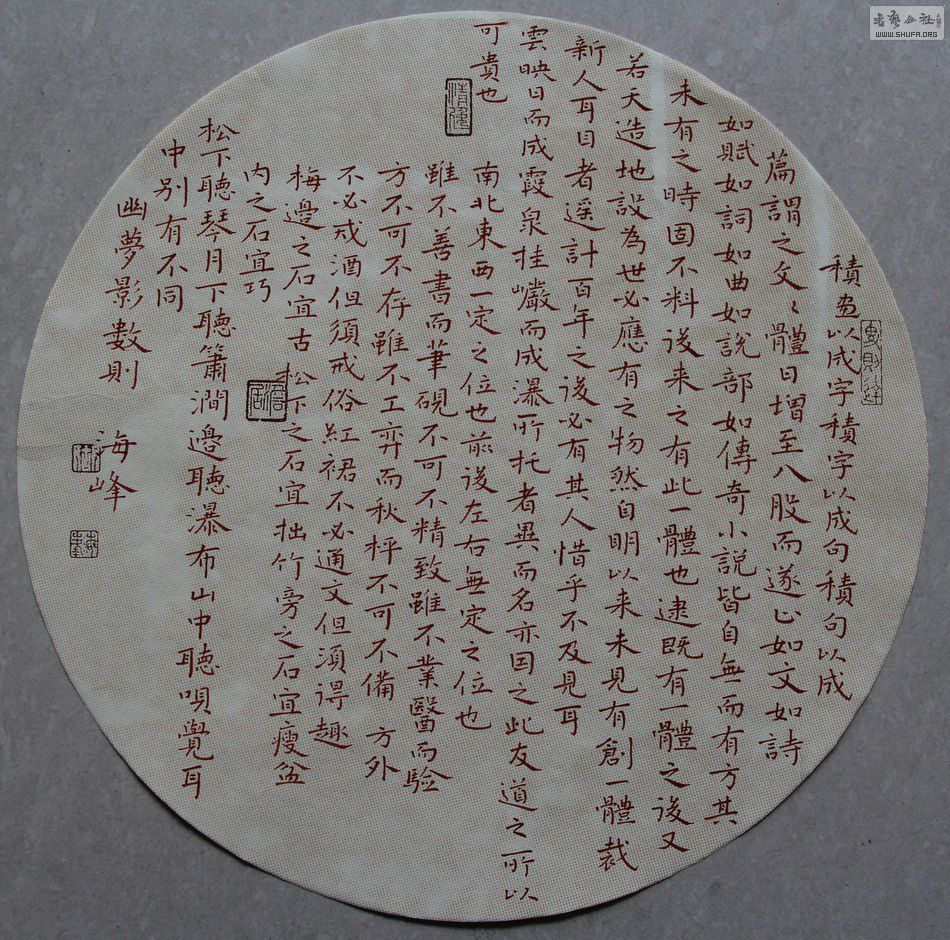 積畫以成字積字以成句積句以成
篇謂之文〻體日增至八股而遂止如文如詩
如賦如詞如曲如說部如傳奇小說皆自無而有方其
未有之時固不料後来之有此一體也逮既有一體之後又
若天造地設為世必應有之物然自明以来未見有創一體裁
新人耳目者遥計百年之後必有其人惜乎不及見耳
雲映日而成霞泉挂巗而成瀑所托者異而名亦因之此友道之所以
可貴也
南北東西一定之位也前後左右無定之位也
雖不善書而筆硯不可不精致雖不業醫而验
方不可不存雖不工弈而秋枰不可不備 方外
不必戒酒但須戒俗紅裙不必通文但須得趣
梅邊之石宜古 松下之石宜拙竹旁之石宜瘦盆
内之石宜巧
松下聽琴月下聽簫澗邊聽瀑布山中聽唄覺耳
中别有不同
幽夢影數則
海峰
WWW.SHUFA.ORG